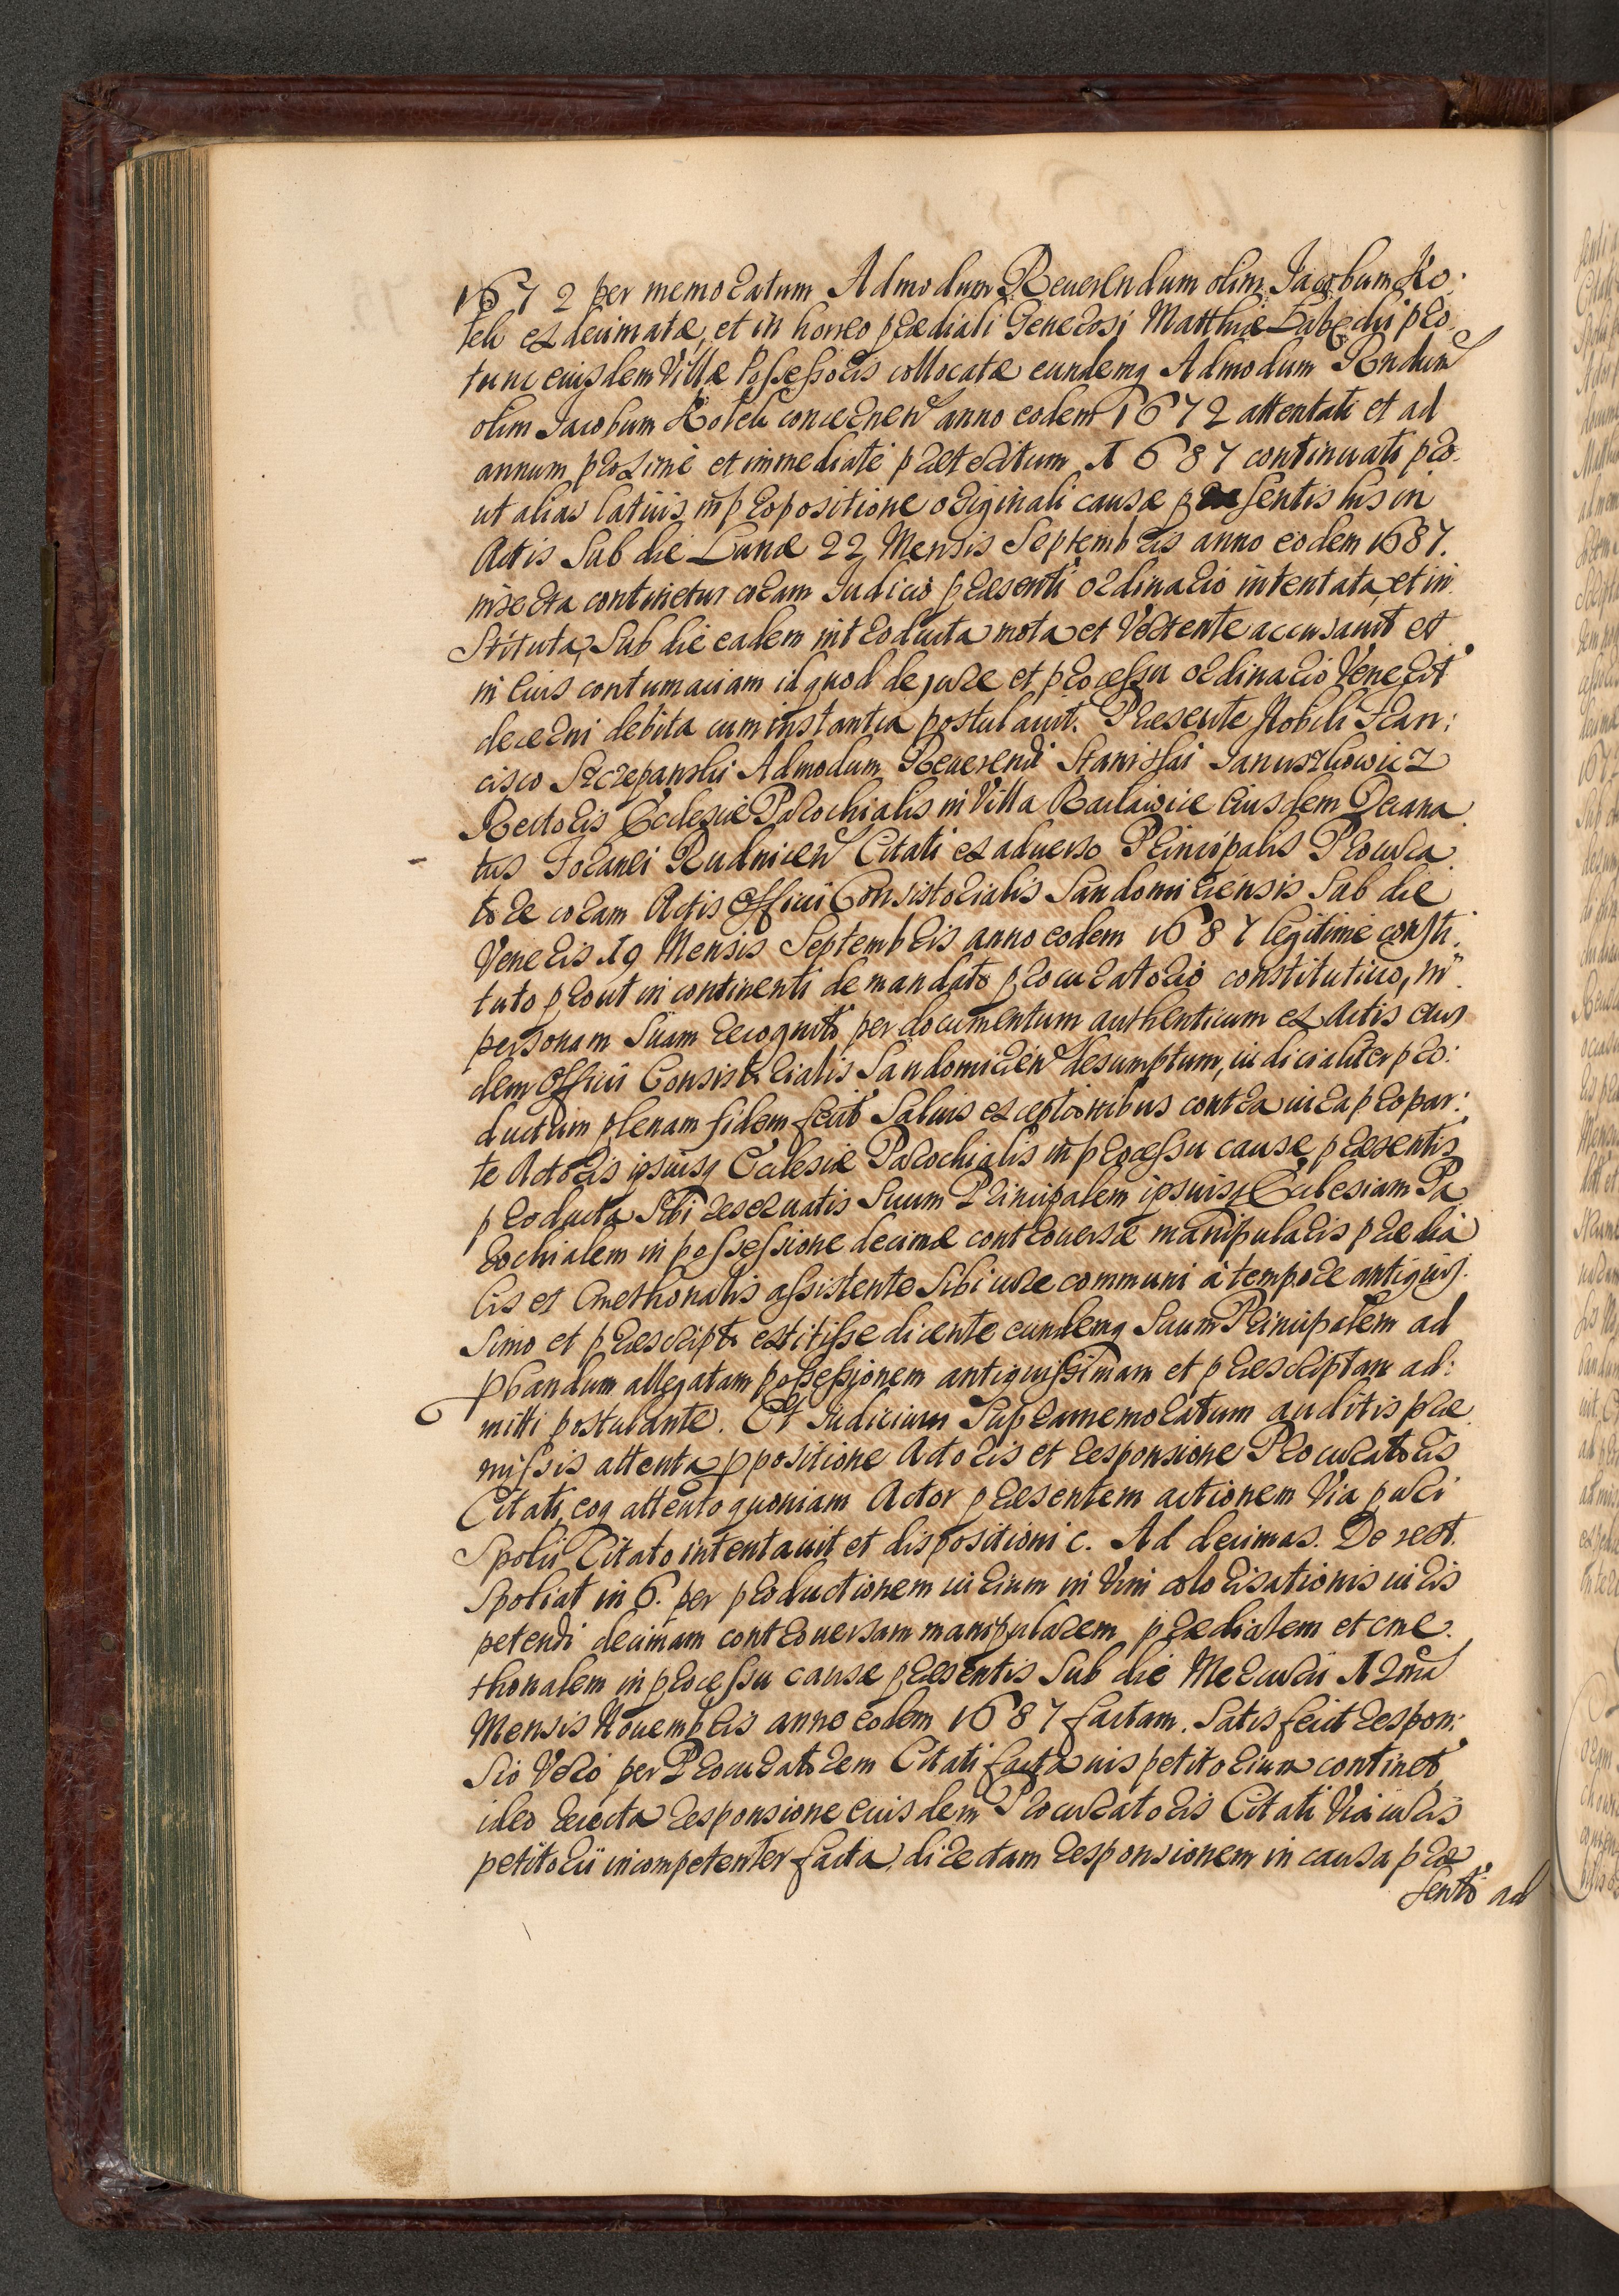 1672 per memoratum Admodum Reuerendum olim Jacobum Ko:
teli exdecimatæ, et in horreo prædiali Generosi Matthiæ Łabęcki pro
tunc eiusdem Villæ Possessoris collocatæ eundemq Admodum Rndum
olim Jacobum Koteli concernen anno eodem 1672 attentati et ad
annum proximè et immediatè præteritum 1687 continuati pro
ut alias latiùs in propositione originali causæ præsentis his in
Actis Sub die Lunæ 22 Mensis Septembris anno eodem 1687.
inserta continetur coram Judicio præsenti ordinario intentata, et in
Stituta, Sub die eadem introducta mota et Vertente accusauit et
in eius contumaciam id quod de jure et processu ordinario Venerit
decerni debita cum instantia postulauit. Præsente Nobili Fran:
cisco Szczepanski Admodum Reuerendi Stanislai Januszkowicz
Rectoris Ecclesiæ Parochialis in Villa Racławice eiusdem Decana
tus Foranei Rudnicen Citati ex aduerso Principalis Procura
tore coram Actis Officii Consistorialis Sandomiriensis Sub die
Veneris 19 Mensis Septembris anno eodem 1687 legitimè consti
tuto prout in continenti de mandato procuratorio constitutiuo, in
personam Suam recognito per documentum authenticum ex Actis eius
dem Officii Consistorialis Sandomirien desumptum, iudicialiter pro:
ductum plenam fidem fecit Saluis exceptionibus contra iura pro par:
te Actoris ipsiusq Ecclesiæ Parochialis in processu causæ præsentis
producta Sibi reseruatis Suum Principalem ipsiusq Ecclesiam Pa
rochialem in possessione decimæ controuersæ manipularis prædia
lis et Cmethonalis assistente Sibi iure communi à tempore antiquis
simo et præscripto extitisse dicente eundemq Suum Principalem ad
pbandum allegatam possessionem antiquissimam et præscriptam ad:
mitti postulante. Et Judicium Supramemoratum auditis præ
missis attenta ppositione Actoris et responsione Procuratoris
Citati, eoq attento quoniam Actor præsentem actionem Via puri
Spolii Citato intentauit et dispositioni c. Ad decimas. De rest.
Spoliat in 6. per productionem iurium in Vim colorisationis iuris
petendi decimam controuersam manipularem prædialem et cme
thonalem in processu causæ præsentis Sub die Mercurii 12ma
Mensis Nouembris anno eodem 1687 factam. Satisfecit respon:
sio Verò per Procuratorem Citati facta ius petitorium continet
ideo reiecta responsione eiusdem Procuratoris Citati Via iuris
petitorii incompetenter facta, directam responsionem in causa præ
senti ad